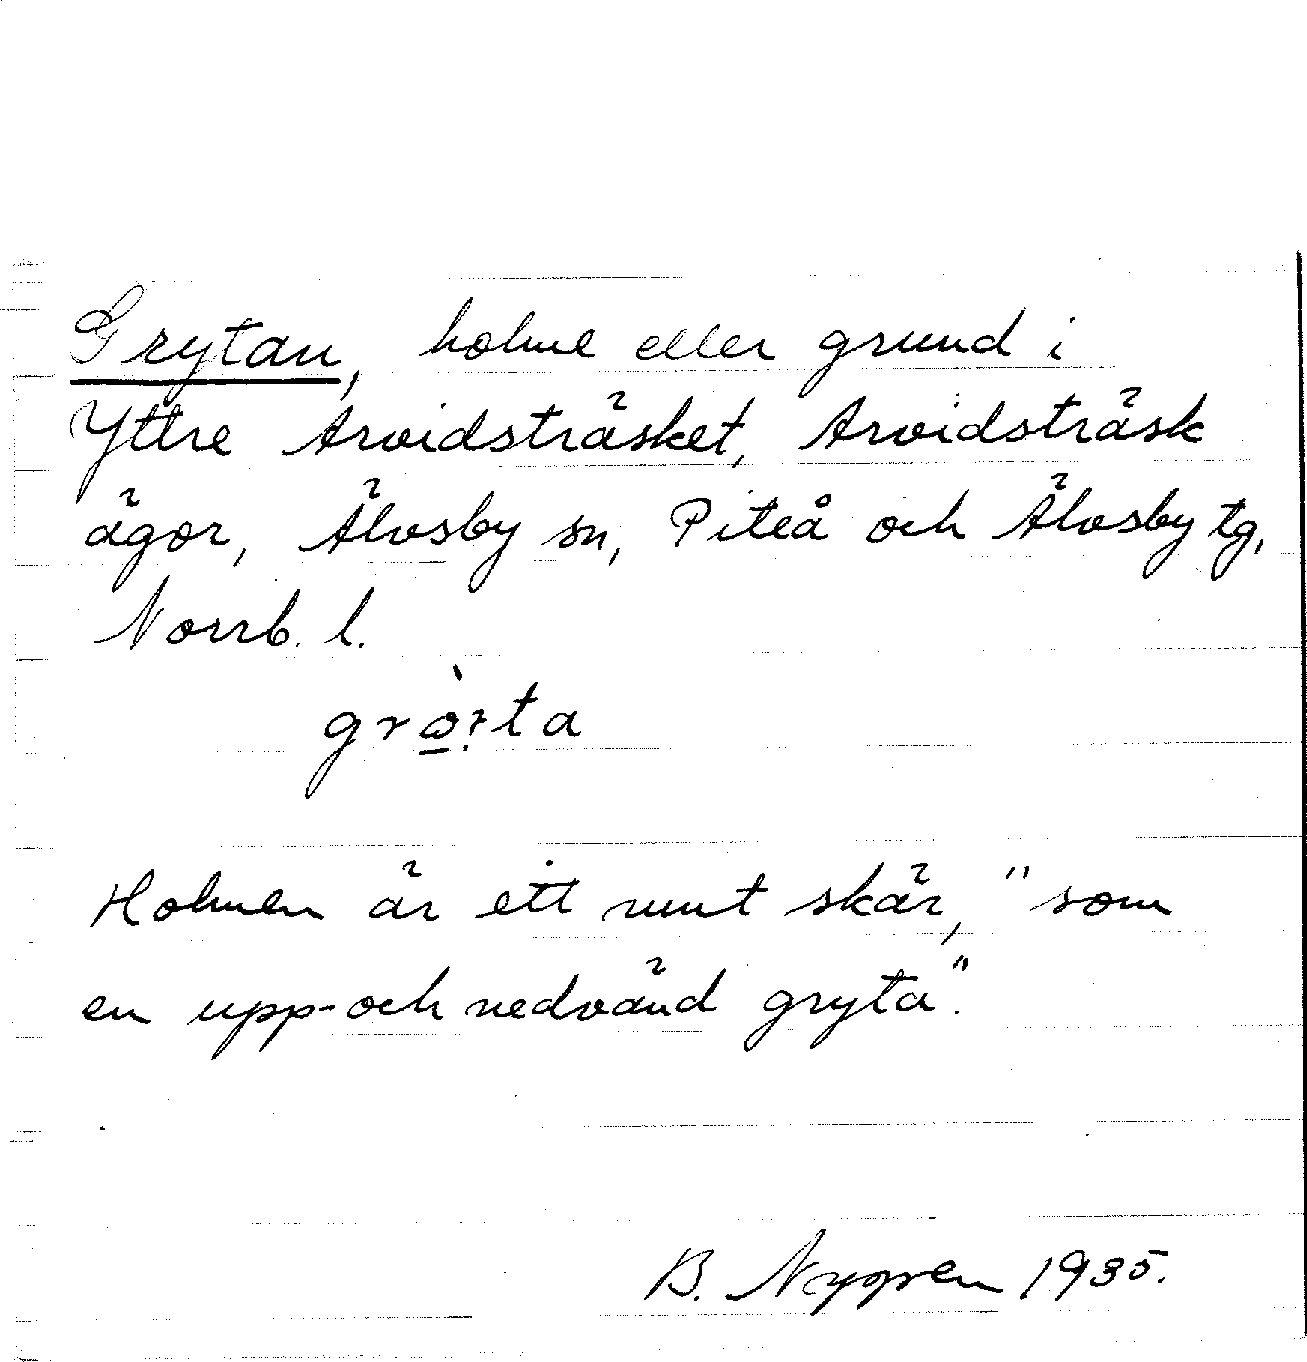 Grytan, holme eller grund i
Yttre Arvidsträsket, Arvidsträsk
ägor, Älvsby sn, Piteå och Älvsby tg,
Norrb. l.
Holmen är ett runt skär, "som
en upp-och nedvänd gryta".
B. Nygren 1935.